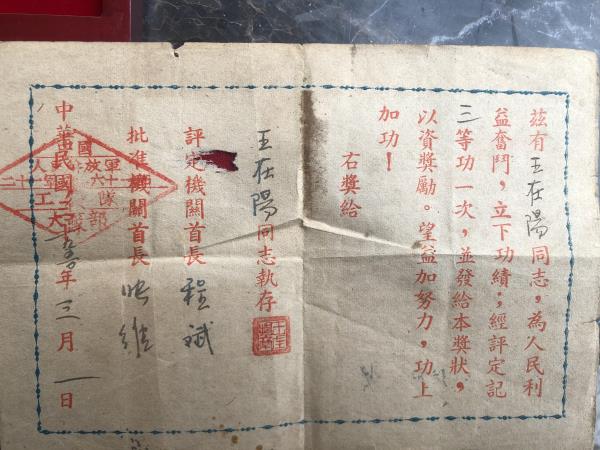 茲有王在陽同志，為人民利
益奮鬥，立下功績；經評定記
三等功一次，並發給本獎狀，
以資獎勵。望益加努力，功上
加功！
右獎給
王在陽同志執存
評定機關首長 程斌
批准機關首長 維
中華民國年三月一日